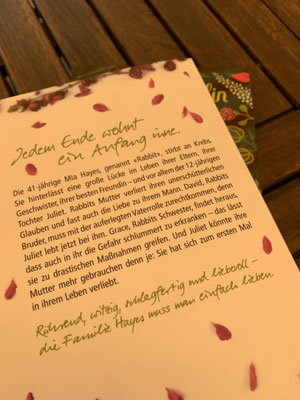 Jedem Ende wohnt
ein Anfang inne.
Die 41-jährige Mia Hayes, genannt «Rabbit», stirbt an Krebs.
Sie hinterlässt eine große Lücke im Leben ihrer Eltern, ihrer
Geschwister, ihrer besten Freundin – und vor allem der 12-jährigen
Tochter Juliet. Rabbits Mutter verliert ihren unerschütterlichen
Glauben und fast auch die Liebe zu ihrem Mann. David, Rabbits
Bruder, muss mit der auferlegten Vaterrolle zurechtkommen, denn
Juliet lebt jetzt bei ihm. Grace, Rabbits Schwester, findet heraus,
dass auch in ihr die Gefahr schlummert zu erkranken – das lässt
sie zu drastischen Maßnahmen greifen. Und Juliet könnte ihre
Mutter mehr gebrauchen denn je: Sie hat sich zum ersten Mal
in ihrem Leben verliebt.
Rührend, witzig, schlagfertig und liebevoll –
die Familie Hayes muss man einfach lieben.